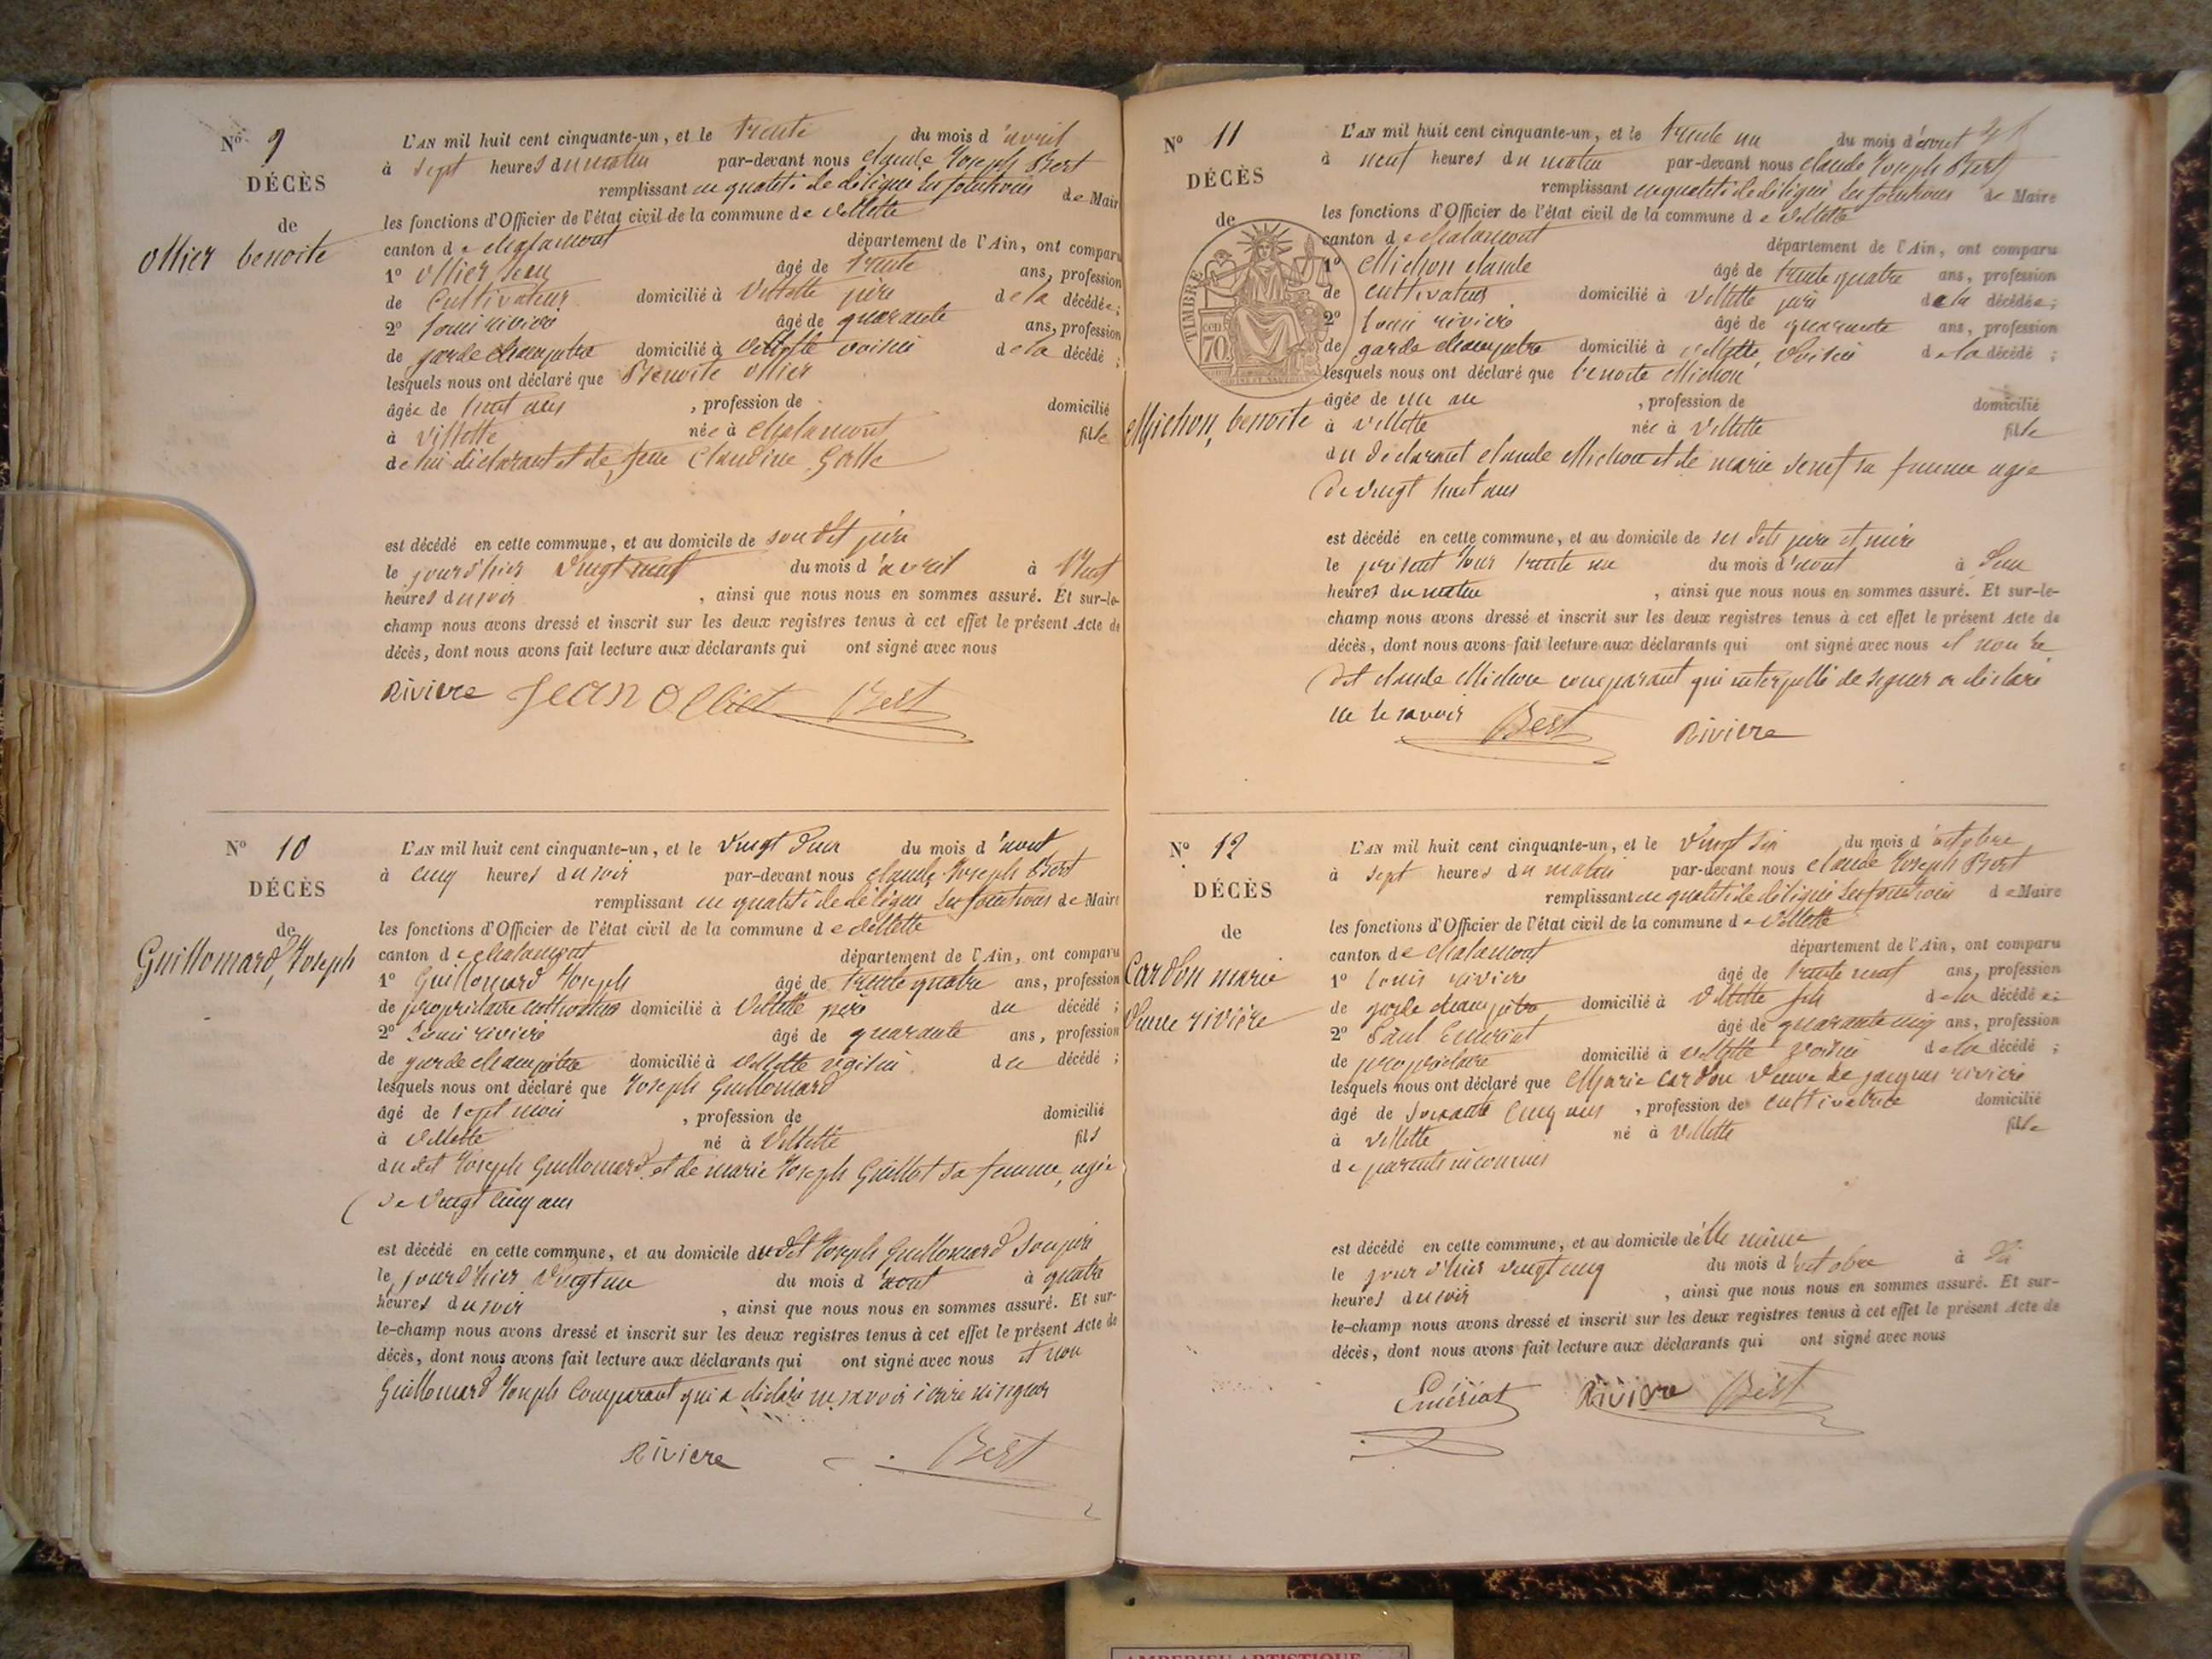 N° 9
DÉCÈS
de
Ollier benoite
L'AN mil huit cent cinquante-un, et le trente du mois d'avril
à sept heures du matin par-devant nous Claude Joseph Best
remplissant en qualité de délégué les fonctions de Mair
les fonctions d'Officier de l'état civil de la commune de Villette
canton de Chalamont département de l'Ain, ont comparu
1° Ollier Jean âgé de trente ans, profession
de Cultivateur domicilié à Villette père de la décédée;
2° Louis rivière âgé de quarante ans, profession
de garde champêtre domicilié à Villette voisin de la décédé ;
lesquels nous ont déclaré que Benoite Ollier
âgée de huit ans , profession de domicilié
à Villette née à Chalamont fille
de lui déclarant et de feue Claudine
est décédé en cette commune, et au domicile de son dit père
le jour d'hier vingt neuf du mois d'avril à huit
heures du soir , ainsi que nous nous en sommes assuré. Et sur-le-
champ nous avons dressé et inscrit sur les deux registres tenus à cet effet le présent Acte de
décès, dont nous avons fait lecture aux déclarants qui ont signé avec nous
Riviere Jean Ollier Best
N° 10
DÉCÈS
de
Guillomard, Joseph
L'AN mil huit cent cinquante-un, et le vingt deux du mois d'aout
à cinq heures du soir par-devant nous Claude Joseph Best
remplissant en qualité de délégué les fonctions de Maire
les fonctions d'Officier de l'état civil de la commune de Villette
canton de Chalamont département de l'Ain, ont comparu
1° Guillomard Joseph âgé de trente quatre ans, profession
de propriétaire cultivateur domicilié à Villette père du décédé ;
2° Louis rivière âgé de quarante ans, profession
de garde champêtre domicilié à Villette voisin du décédé ;
lesquels nous ont déclaré que Joseph Guillomard
âgé de sept mois , profession de domicilié
à Villette né à Villette fils
du dit Joseph Guillomard et de marie Joseph Guillot sa femme, agée
de vingt cinq ans
est décédé en cette commune, et au domicile du dit Joseph Guillomard son père
le jour d'hier vingt un du mois d'aout à quatre
heures du soir , ainsi que nous nous en sommes assuré. Et sur-
le-champ nous avons dressé et inscrit sur les deux registres tenus à cet effet le présent Acte de
décès, dont nous avons fait lecture aux déclarants qui ont signé avec nous et non
Guillomard Joseph Comparant qui a déclaré ne savoir écrire ni signer
Riviere Best
N° 11
DÉCÈS
de
TIMBRE
70
Michon, benoite
L'AN mil huit cent cinquante-un, et le trente un du mois d'aout
à neuf heures du matin par-devant nous Claude Joseph Best
remplissant en qualité de délégué les fonctions de Maire
les fonctions d'Officier de l'état civil de la commune de Villette
canton de Chalamont département de l'Ain, ont comparu
1° Michon claude âgé de trente quatre ans, profession
de cultivateur domicilié à Villette père de la décédée;
2° Louis rivière âgé de quarante ans, profession
de garde champêtre domicilié à Villette, voisin de la décédé ;
lesquels nous ont déclaré que benoite Michon
âgée de un an , profession de domicilié
à Villette née à Villette fille
du déclarant claude Michon et de marie sa femme agée
de vingt huit ans
est décédé en cette commune, et au domicile de ses dits père et mère
le présent jour trente un du mois d'aout à
heures du matin , ainsi que nous nous en sommes assuré. Et sur-le-
champ nous avons dressé et inscrit sur les deux registres tenus à cet effet le présent Acte de
décès, dont nous avons fait lecture aux déclarants qui ont signé avec nous et non le
dit claude Michon comparant qui interpellé de signer a déclaré
ne le savoir
Best Riviere
N° 12
DÉCÈS
de
Cardon marie
Veuve rivière
L'AN mil huit cent cinquante-un, et le vingt six du mois d'octobre
à sept heures du matin par-devant nous Claude Joseph Best
remplissant en qualité de délégué les fonctions de Maire
les fonctions d'Officier de l'état civil de la commune de Villette
canton de Chalamont département de l'Ain, ont comparu
1° Louis rivière âgé de trente neuf ans, profession
de garde champêtre domicilié à Villette fils de la décédée;
2° Paul Emeriat âgé de quarante cinq ans, profession
de propriétaire domicilié à Villette voisin de la décédé ;
lesquels nous ont déclaré que Marie Cardon Veuve de jacques rivière
âgé de soixante cinq ans , profession de cultivatrice domicilié
à Villette né à Villette fille
de parents inconnus
est décédé en cette commune, et au domicile d'elle même
le jour d'hier vingt cinq du mois d'octobre à
heures du soir , ainsi que nous nous en sommes assuré. Et sur-
le-champ nous avons dressé et inscrit sur les deux registres tenus à cet effet le présent Acte de
décès, dont nous avons fait lecture aux déclarants qui ont signé avec nous
Emériat Riviere Best